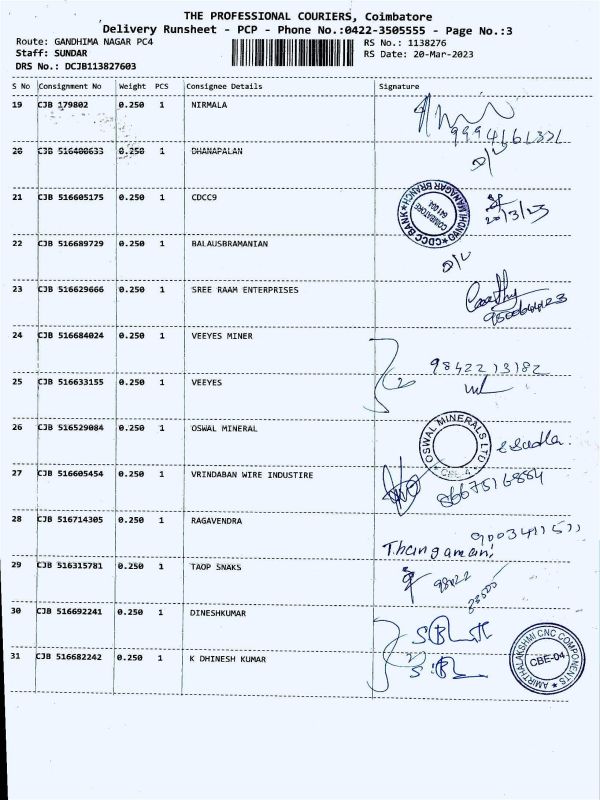 THE PROFESSIONAL COURIERS, Coimbatore
Delivery Runsheet - PCP - Phone No.:0422-3505555 - Page No.:3
Route: GANDHIMA NAGAR PC4
RS No.: 1138276
Staff: SUNDAR
RS Date: 20-Mar-2023
DRS No.: DCJB113827603
S No Consignment No Weight PCS Consignee Details Signature
19 CJB 179802 0.250 1 NIRMALA
20 CJB 516400633 0.250 1 DHANAPALAN
D/L
21 CJB 516605175 0.250 1 CDCC9
CDCC BANK COIMBATORE 20/3/23
22 CJB 516689729 0.250 1 BALAUSBRAMANIAN
D/L
23 CJB 516629666 0.250 1 SREE RAAM ENTERPRISES
24 CJB 516684024 0.250 1 VEEYES MINER
9842213182
25 CJB 516633155 0.250 1 VEEYES
26 CJB 516529084 0.250 1 OSWAL MINERAL
OSWAL MINERALS LTD CBE-4
27 CJB 516605454 0.250 1 VRINDABAN WIRE INDUSTIRE
8667516884
28 CJB 516714305 0.250 1 RAGAVENDRA
Thangamani
29 CJB 516315781 0.250 1 TAOP SNAKS
30 CJB 516692241 0.250 1 DINESHKUMAR
31 CJB 516682242 0.250 1 K DHINESH KUMAR
AMIRTHALAKSHMI CNC COMPONENTS CBE-04